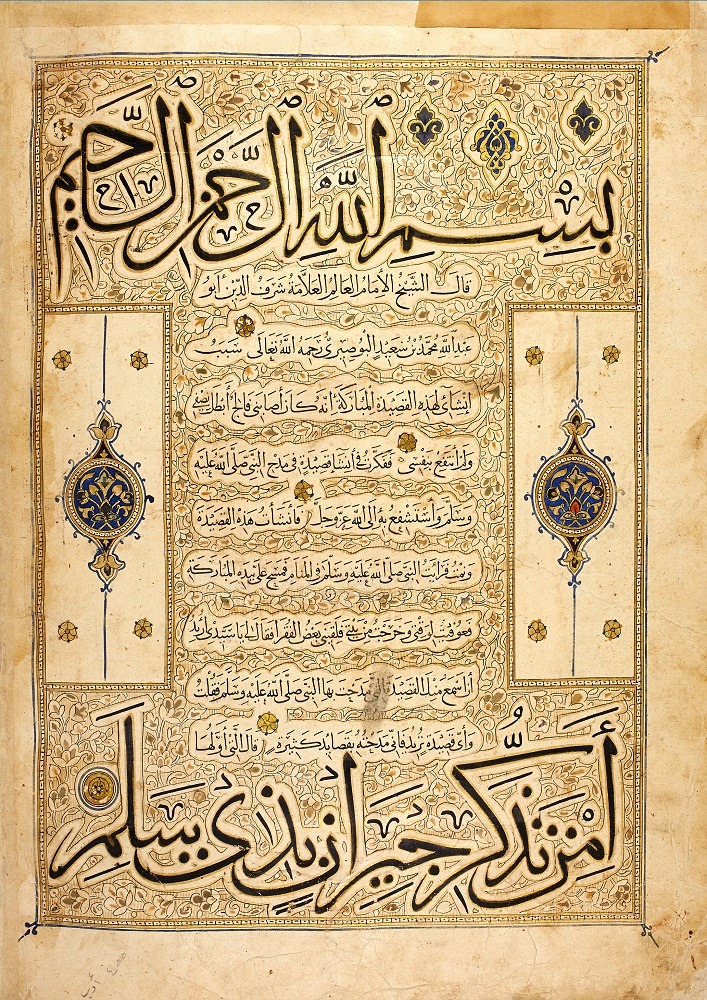 بسم الله الرحمن الرحيم
قال الشيخ الإمام العالم العلامة شرف الدين أبو
عبد الله محمد بن سعيد البوصيري رحمه الله تعالى سبب
إنشائي لهذه القصيدة المباركة أنه كان أصابني فالج أبطل نصفي
ولم أنتفع بنفسي ففكرت في إنشاء قصيدة في مدح النبي صلى الله عليه
وسلم وأستشفع به إلى الله عز وجل فأنشأت هذه القصيدة
ونمت فرأيت النبي صلى الله عليه وسلم في المنام فمسح علي بيده المباركة
فعوفيت لوقتي وخرجت من بيتي فلقيني بعض الفقراء فقال لي يا سيدي أريد
أن أسمع منك القصيدة التي مدحت بها النبي صلى الله عليه وسلم فقلت
وأي قصيدة تريد فإني مدحته بقصائد كثيرة قال التي أولها
أمن تذكر جيران بذي سلم